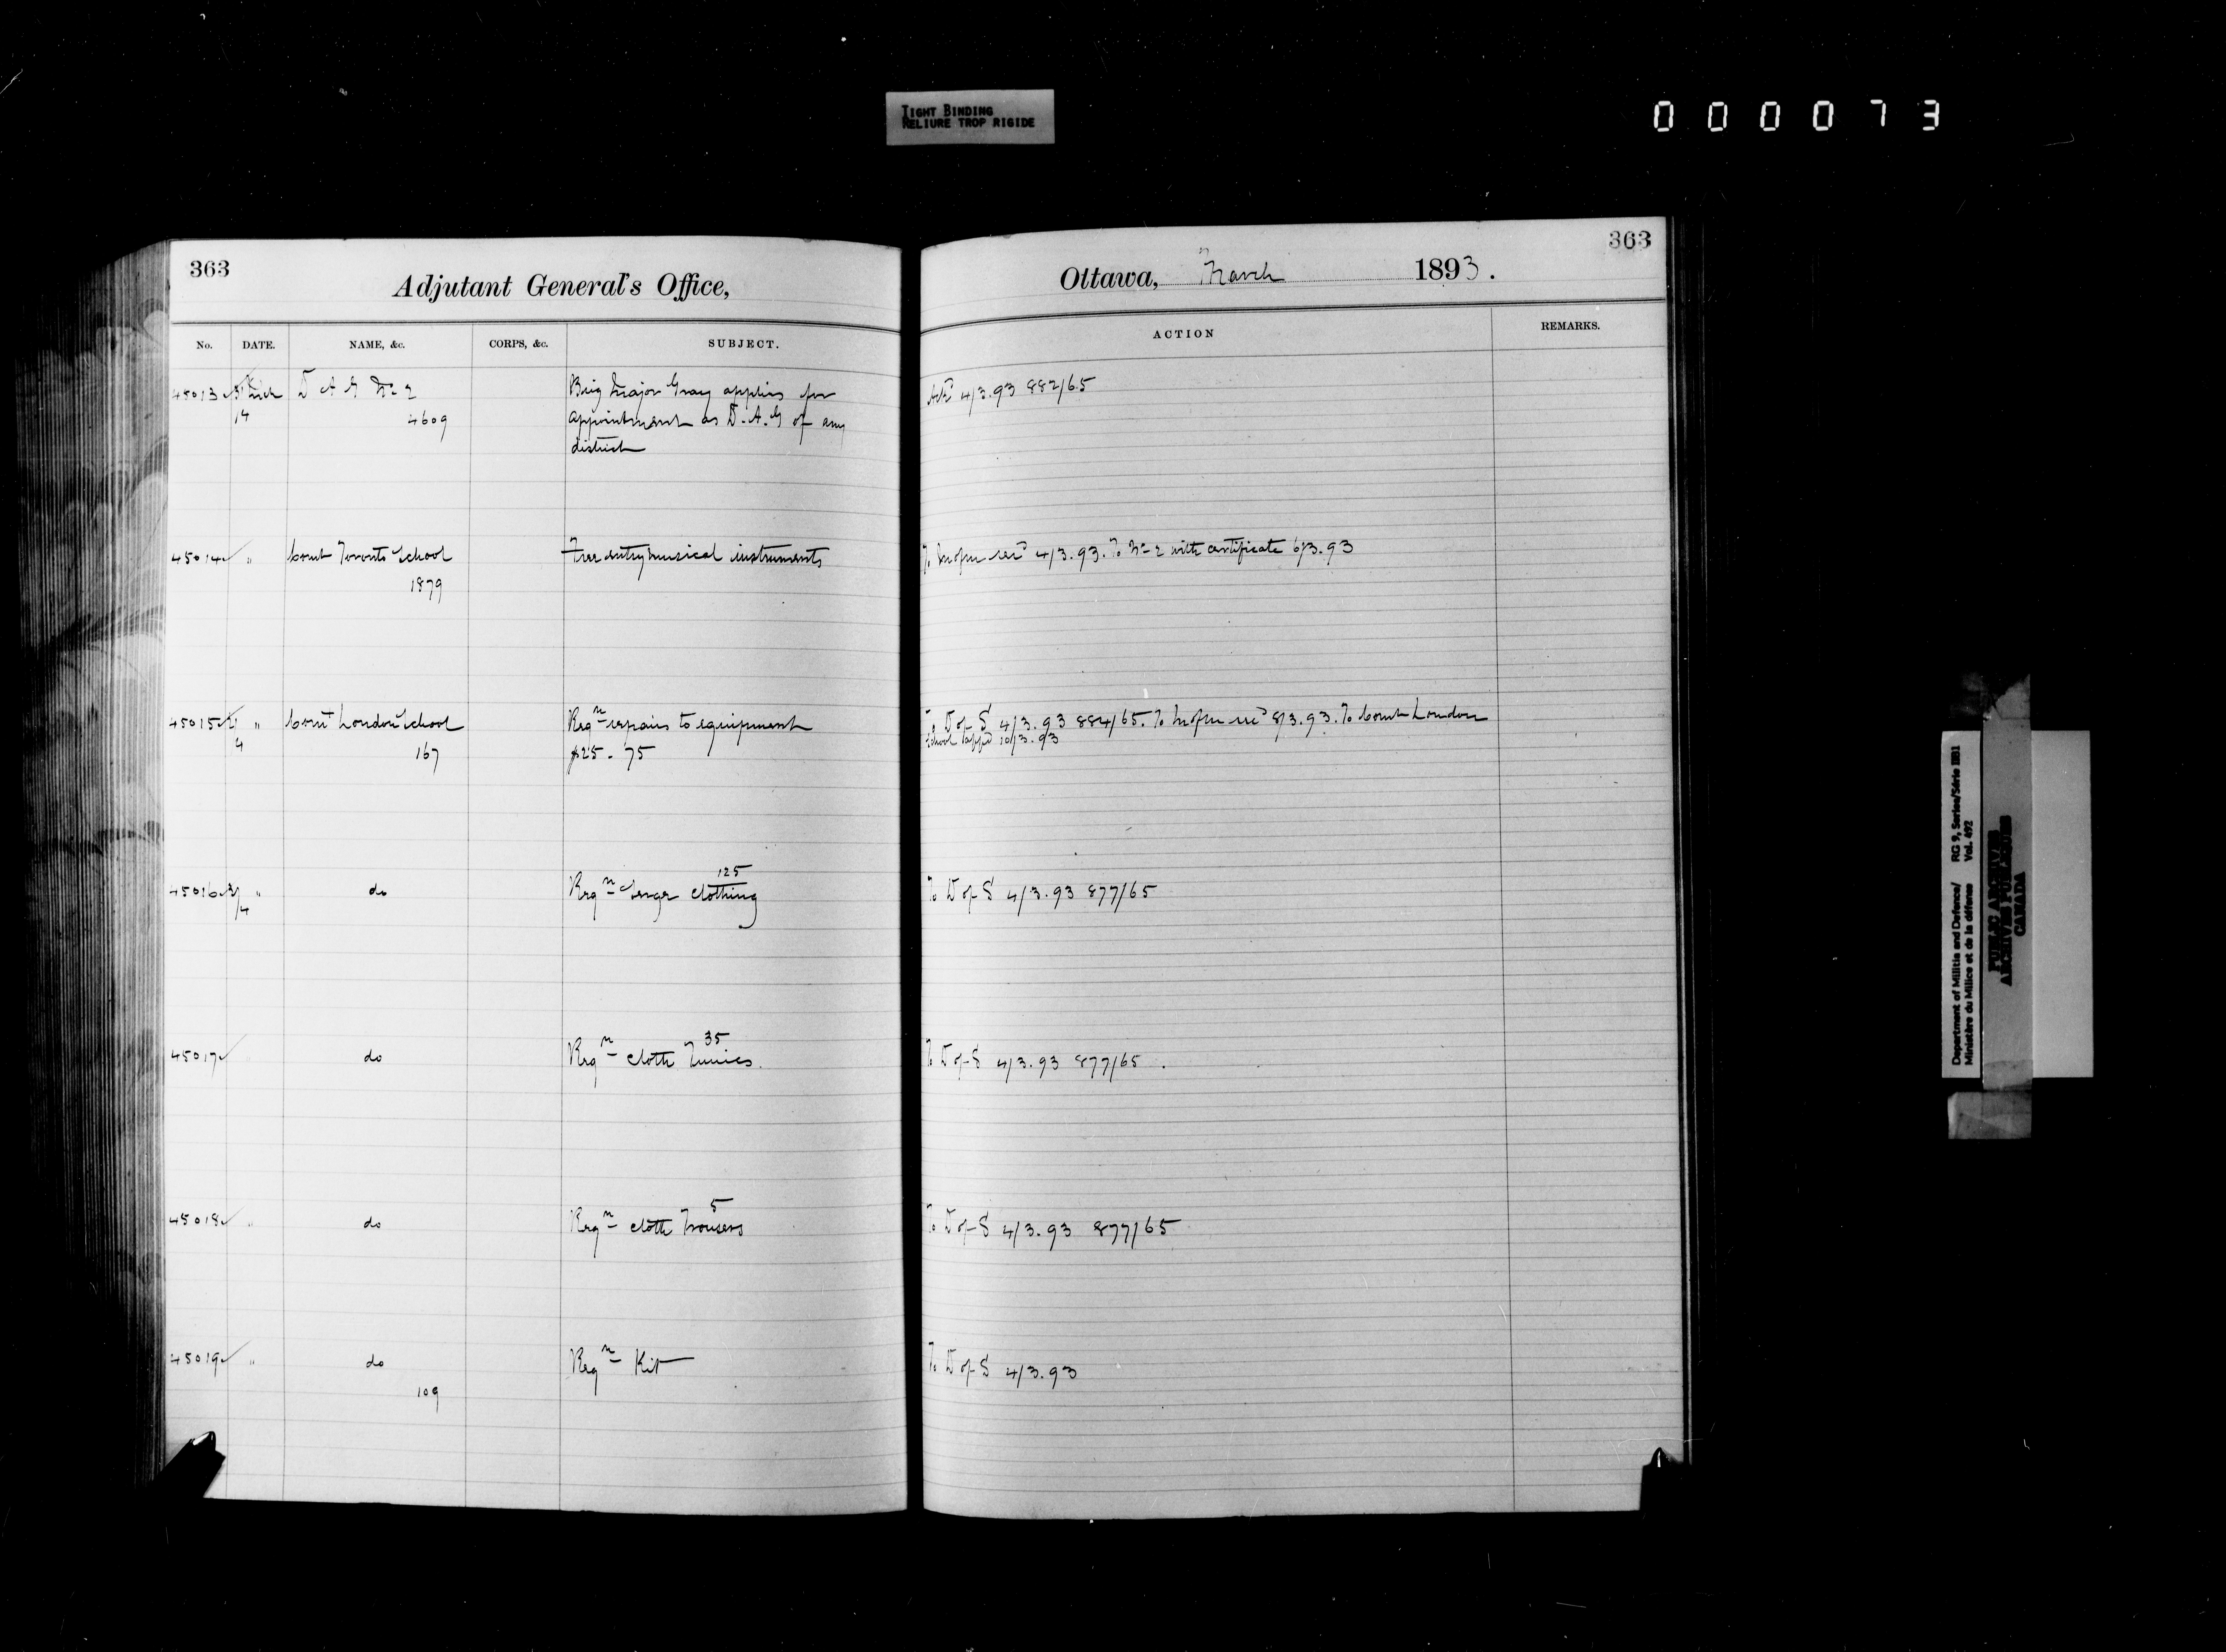 TIGHT BINDING
RELIURE TROP RIGIDE
000073
363
Adjutant General's Office,
No. DATE. NAME, &c. CORPS, &c. SUBJECT.
45013 3 March D A G No 2 Brig Major Gray applies for
/4 4609 appointment as D.A.G of any
district
45014 " Comt Toronto School Free entry musical instruments
1879
45015 " Comt London School Reqn repairs to equipment
4 167 $25.75
125
45016 " do Reqn Serge clothing
/4
35
45017 do Reqn cloth Tunics.
5
45018 " do Reqn cloth Trousers
45019 " do Reqn Kit
109
363
Ottawa, March 1893.
ACTION REMARKS.
Ackd 4/3.93 882/65
To 4/3.93. To No 2 with certificate 6/3.93
To D of S 4/3.93 884/65. To 8/3.93. To Comt London
School 10/3.93
To D of S 4/3.93 877/65
To D of S 4/3.93 877/65.
To D of S 4/3.93 877/65
To D of S 4/3.93
Department of Militia and Defence/ RG 9, Series/Série IIB1
Ministère du Milice et de la défense Vol. 492
PUBLIC ARCHIVES
ARCHIVES PUBLIQUES
CANADA